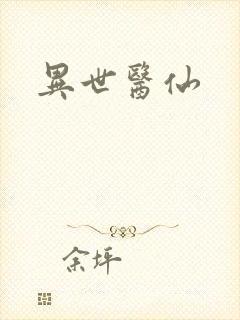 異世醫仙
余坪